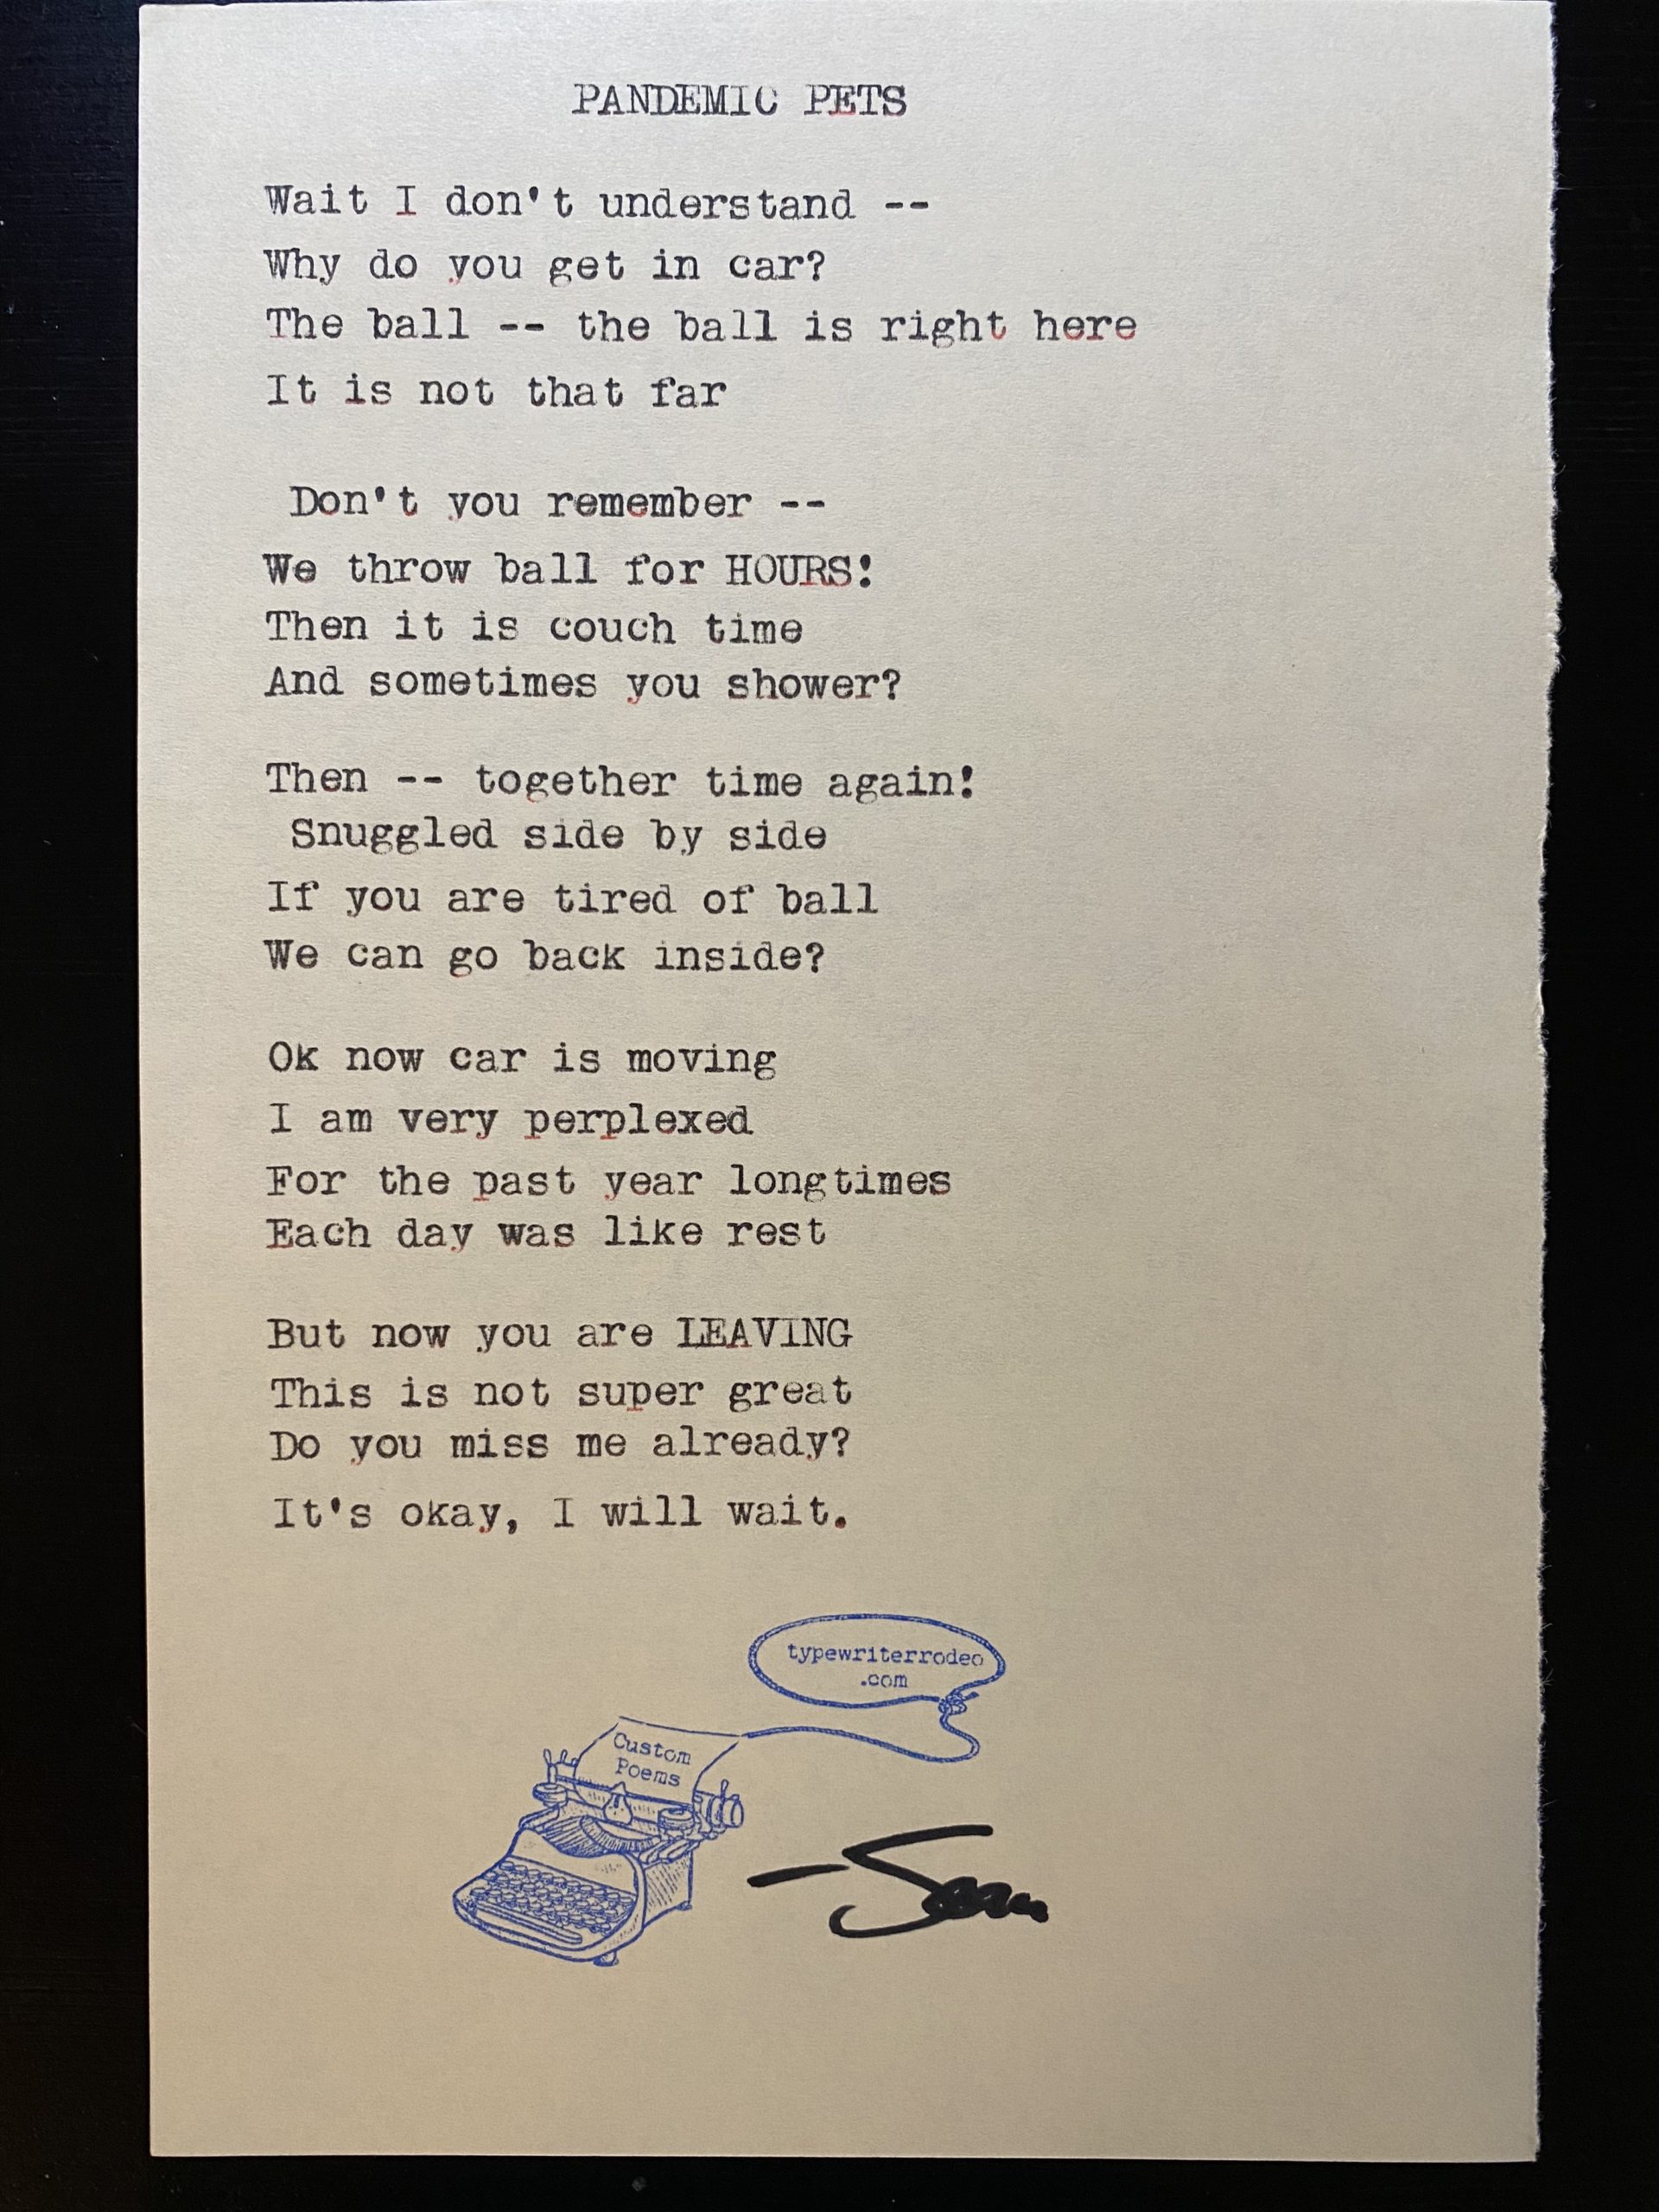 PANDEMIC PETS
Wait I don't understand --
Why do you get in car?
The ball -- the ball is right here
It is not that far
Don't you remember --
We throw ball for HOURS!
Then it is couch time
And sometimes you shower?
Then -- together time again!
Snuggled side by side
If you are tired of ball
We can go back inside?
Ok now car is moving
I am very perplexed
For the past year longtimes
Each day was like rest
But now you are LEAVING
This is not super great
Do you miss me already?
It's okay, I will wait.
typewriterrodeo
.com
Custom
Poems